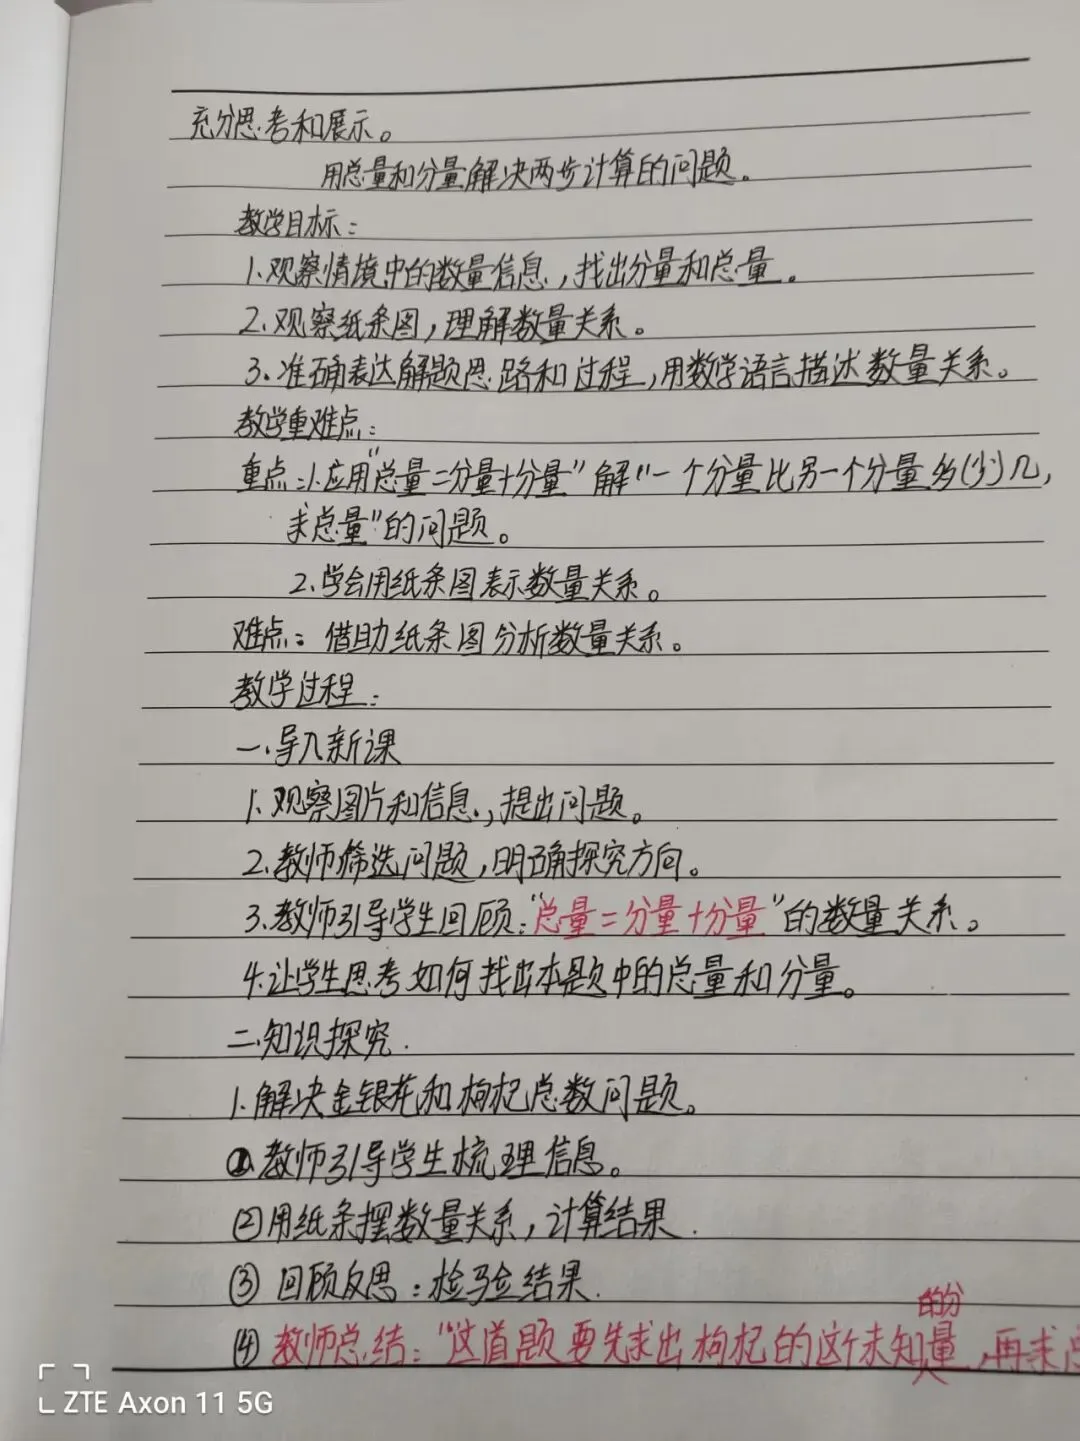 充分思考和展示。
用总量和分量解决两步计算的问题。
教学目标：
1.观察情境中的数量信息，找出分量和总量。
2.观察纸条图，理解数量关系。
3.准确表达解题思路和过程，用数学语言描述数量关系。
教学重难点：
重点：1.应用“总量=分量+分量”解“一个分量比另一个分量多(少)几，
求总量”的问题。
2.学会用纸条图表示数量关系。
难点：借助纸条图分析数量关系。
教学过程：
一.导入新课
1.观察图片和信息，提出问题。
2.教师筛选问题，明确探究方向。
3.教师引导学生回顾：“总量=分量+分量”的数量关系。
4.让学生思考如何找出本题中的总量和分量。
二.知识探究.
1.解决金银花和枸杞总数问题。
①教师引导学生梳理信息。
②用纸条摆数量关系，计算结果.
③回顾反思：检验结果.
④教师总结：“这道题要先求出枸杞的这个未知的分量，再求总
ZTE Axon 11 5G